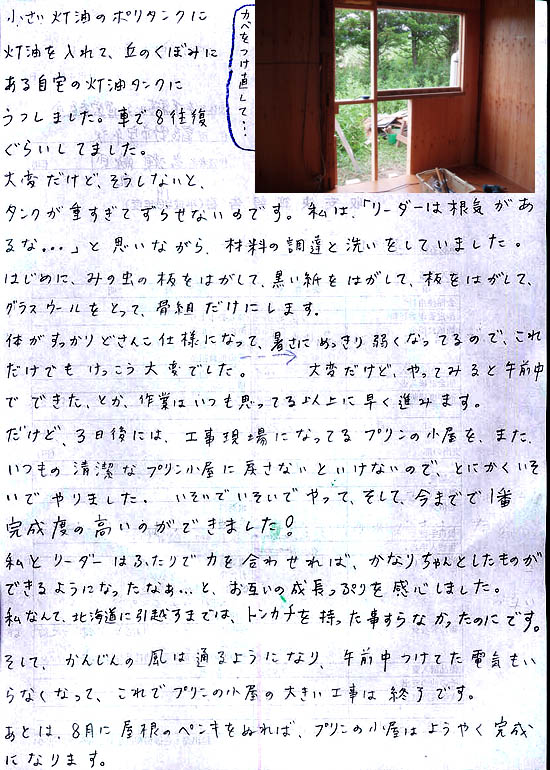 小さい灯油のポリタンクに
灯油を入れて、丘のくぼみに
ある自宅の灯油タンクに
うつしました。車で8往復
ぐらいしてました。
大変だけど、そうしないと、
タンクが重すぎてずらせないのです。私は、「リーダーは根気があ
るな。。。」と思いながら、材料の調達と洗いをしていました。
はじめに、みの虫の板をはがして、黒い紙をはがして、板をはがして、
グラスウールをとって、骨組だけにします。
体がすっかりどさんこ仕様になって、暑さにめっきり弱くなってるので、これ
だけでもけっこう大変でした。 大変だけど、やってみると午前中
でできた、とか、作業はいつも思ってる以上に早く進みます。
だけど、3日後には、工事現場になってるプリンの小屋を、また、
いつもの清潔なプリン小屋に戻さないといけないので、とにかくいそ
いでやりました。いそいでいそいでやって、そして、今までで1番
完成度の高いのができました!
私とリーダーはふたりで力を合わせれば、かなりちゃんとしたものが
できるようになったなぁ...と、お互いの成長っぷりを感心しました。
私なんて、北海道に引越すまでは、トンカチを持った事すらなかったのにです。
そして、かんじんの風は通るようになり、午前中つけてた電気もい
らなくなって、これでプリンの小屋の大きい工事は終了です。
あとは、8月に屋根のペンキをぬれば、プリンの小屋はようやく完成
になります。
カベをつけ直して・・・